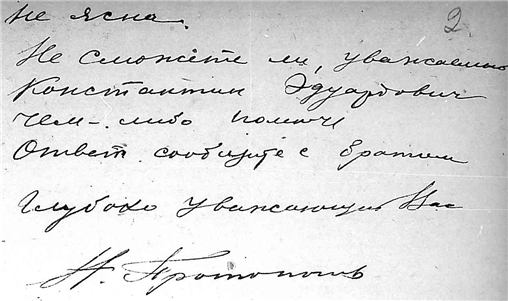 2
не ясна.
Не сможете ли, уважаемый
Константин Эдуардович
чем-либо помочь
Ответ сообщите с братом
Глубоко уважающий Вас
Н.